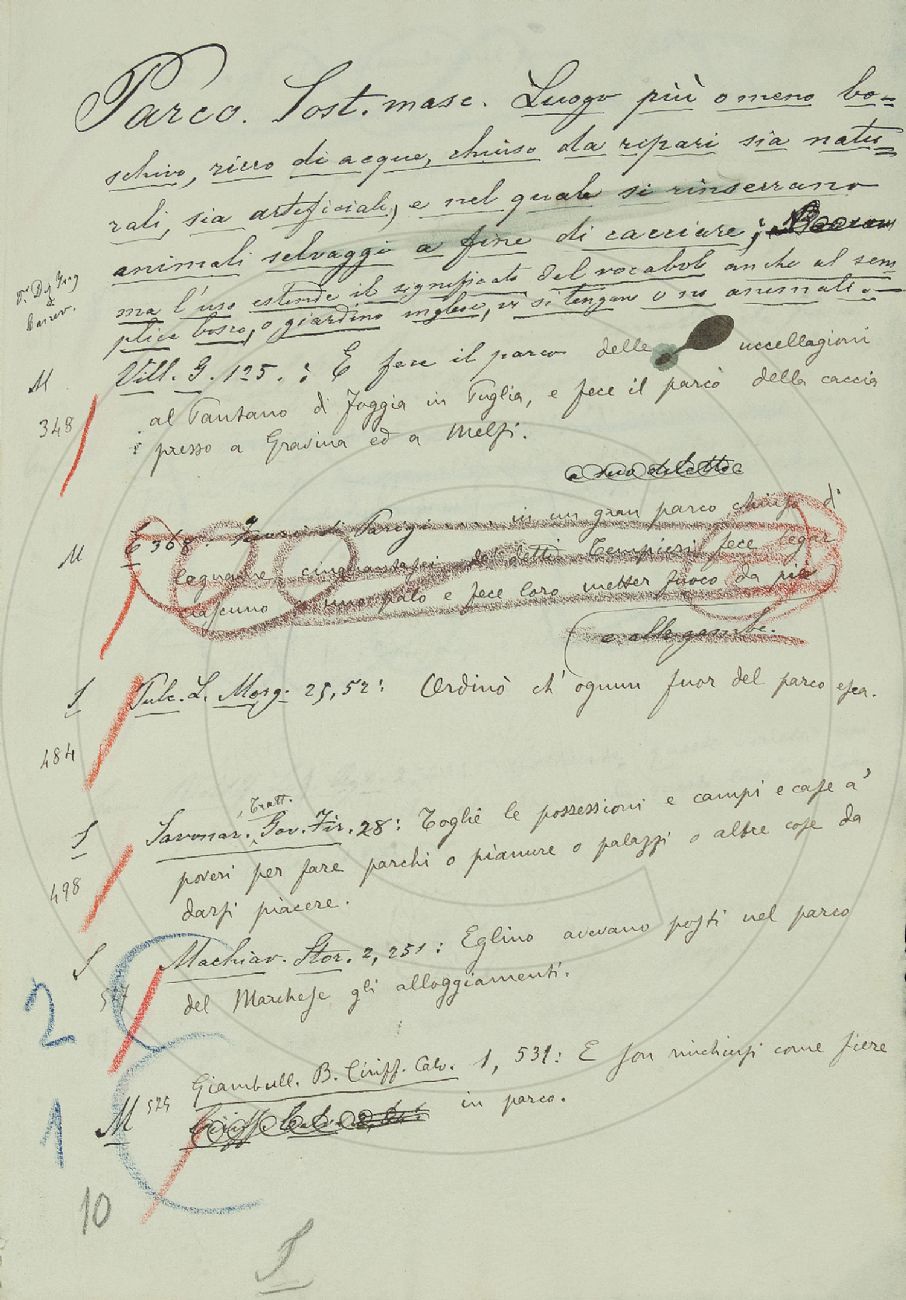 Parco. Sost. masc. Luogo più o meno bo=
schivo, ricco di acque, chiuso da ripari sia natu=
rali, sia artificiali, e nel quale si rinserrano
animali selvaggi a fine di cacciare;
ma l'uso estende il significato del vocabolo anche al sem
plice bosco, o giardino inglese, vi si tengano o no animali.
M
348
Vill. G. 125. : E fece il parco delle uccellagioni
al Pantano di Foggia in Puglia, e fece il parco della caccia
presso a Gravina ed a Melfi.
a suo diletto
M
E 368: Fuori di Parigi in un gran parco chiuso di
legname cinquantasei de' detti Tempieri fece legar
ciascuno uno palo e fece loro metter fuoco da piè
e alle gambe.
S
484
Pulc. L. Morg. 25, 52: Ordinò ch' ognun fuor del parco esca.
S
498
Tratt.
Savonar. Gov. Fir. 28: Toglie le possessioni e campi e case a'
poveri per fare parchi o pianure o palazzi o altre cose da
darsi piacere.
S
2
Machiav. Stor. 2, 251: Eglino avevano posti nel parco
del Marchese gli alloggiamenti.
M 525
1
Giambull. B. Ciriff. Calv. 1, 531: E son rinchiusi come fiere
in parco.
10
S